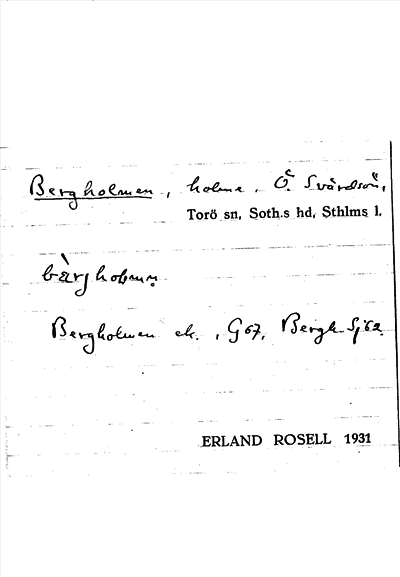 Bergholmen, holme, Ö. Svärdsö,
Torö sn, Soth.s hd, Sthlms l.
bàrjholmən
Bergholmen ek., G67, Bergh- Sj62
ERLAND ROSELL 1931